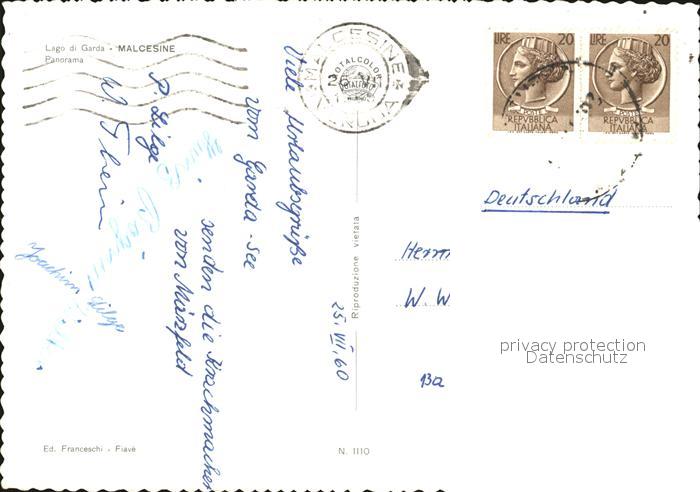 Lago di Garda - MALCESINE
Panorama
MALCESINE
VERONA
TOTALCOLOR
LIRE 20
REPVBBLICA
ITALIANA
LIRE 20
REPVBBLICA
ITALIANA
Viele Urlaubsgrüße
vom Garda-See
senden die Krachmacher
von
W.
Joachim
25. VII. 60
Deutschland
Herrn
W. W
Ba
Riproduzione vietata
privacy protection
Datenschutz
Ed. Franceschi - Fiavè
N. 1110